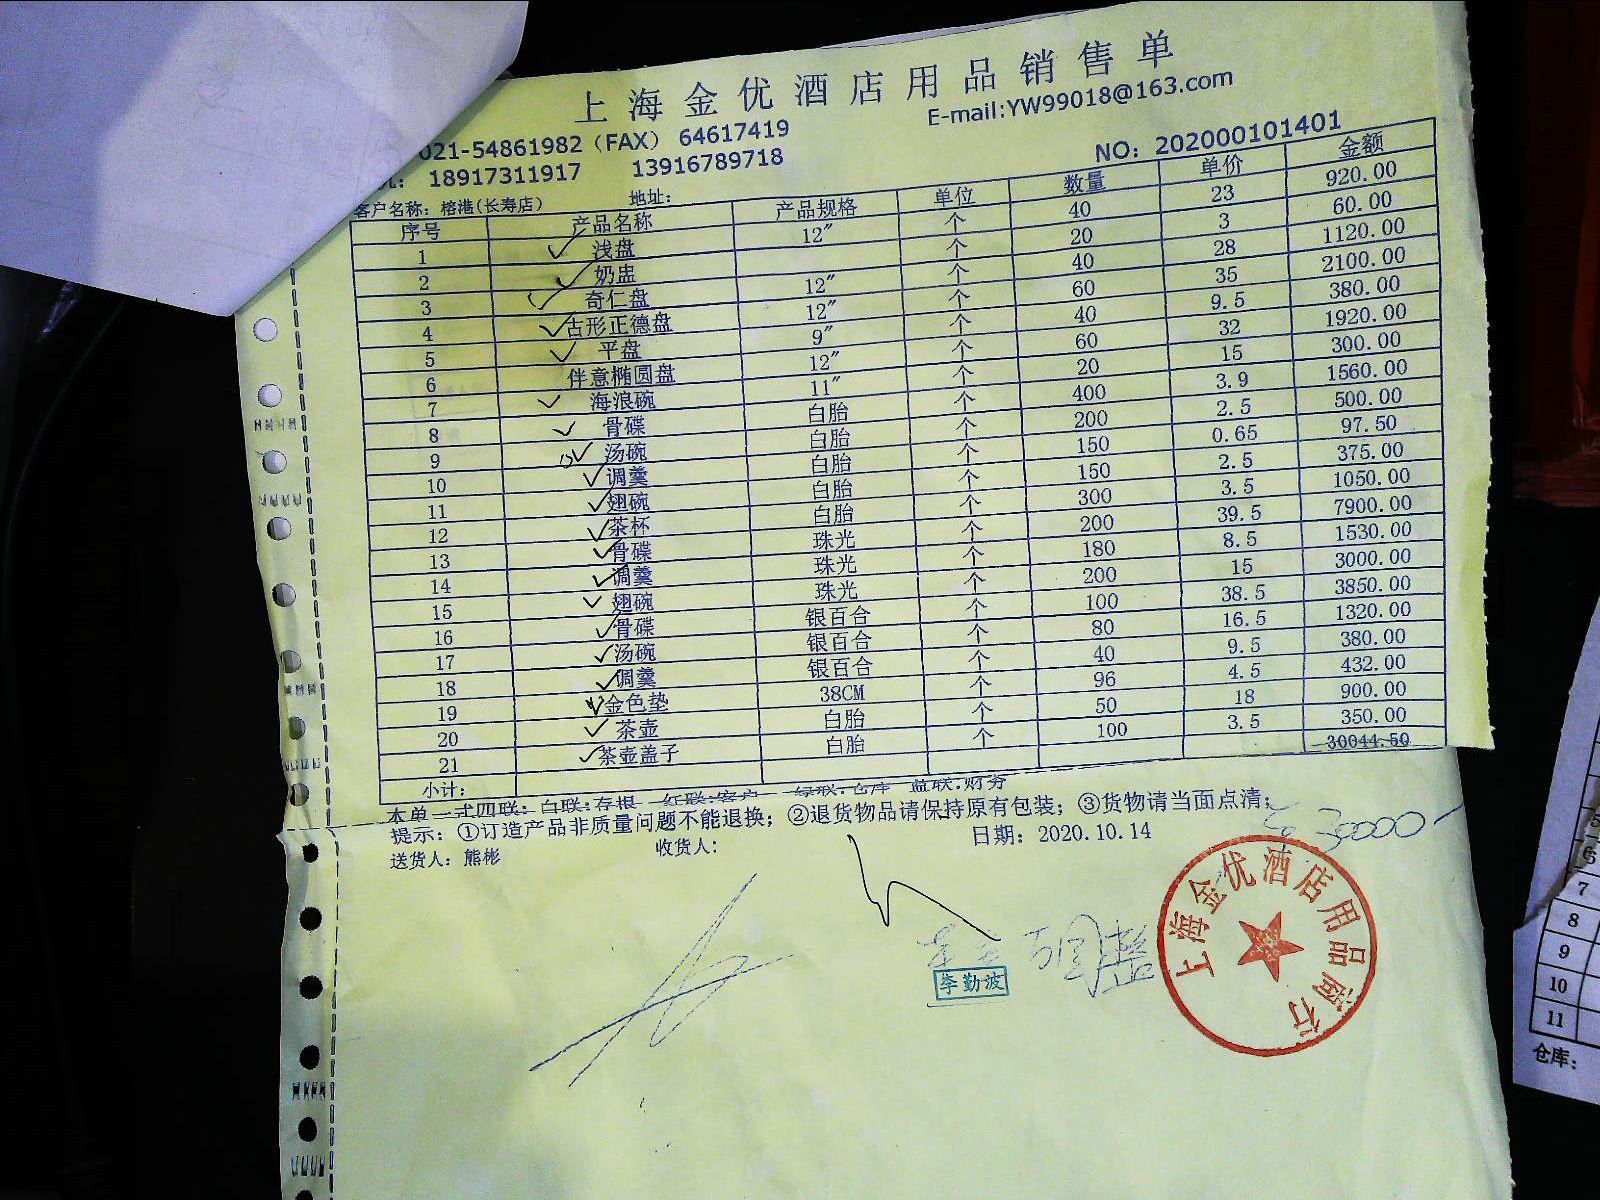 上海金优酒店用品销售单
021-54861982（FAX）64617419 E-mail:YW99018@163.com
18917311917 13916789718 NO：202000101401
客户名称：榕港(长寿店) 地址：
序号 产品名称 产品规格 单位 数量 单价 金额
1 浅盘 12″ 个 40 23 920.00
2 奶盅 个 20 3 60.00
3 奇仁盘 12″ 个 40 28 1120.00
4 古形正德盘 12″ 个 60 35 2100.00
5 平盘 9″ 个 40 9.5 380.00
6 伴意椭圆盘 12″ 个 60 32 1920.00
7 海浪碗 11″ 个 20 15 300.00
8 骨碟 白胎 个 400 3.9 1560.00
9 汤碗 白胎 个 200 2.5 500.00
10 调羹 白胎 个 150 0.65 97.50
11 翅碗 白胎 个 150 2.5 375.00
12 茶杯 白胎 个 300 3.5 1050.00
13 骨碟 珠光 个 200 39.5 7900.00
14 调羹 珠光 个 180 8.5 1530.00
15 翅碗 珠光 个 200 15 3000.00
16 骨碟 银百合 个 100 38.5 3850.00
17 汤碗 银百合 个 80 16.5 1320.00
18 调羹 银百合 个 40 9.5 380.00
19 金色垫 38CM 个 96 4.5 432.00
20 茶壶 白胎 个 50 18 900.00
21 茶壶盖子 白胎 个 100 3.5 350.00
小计： 30044.50
本单一式四联：白联:存根 红联:客户 绿联:仓库 蓝联:财务
提示：①订造产品非质量问题不能退换；②退货物品请保持原有包装；③货物请当面点清；
送货人：熊彬 收货人： 日期：2020.10.14
30000
李勤波
上海金优酒店用品商行
7
8
9
10
11
仓库：